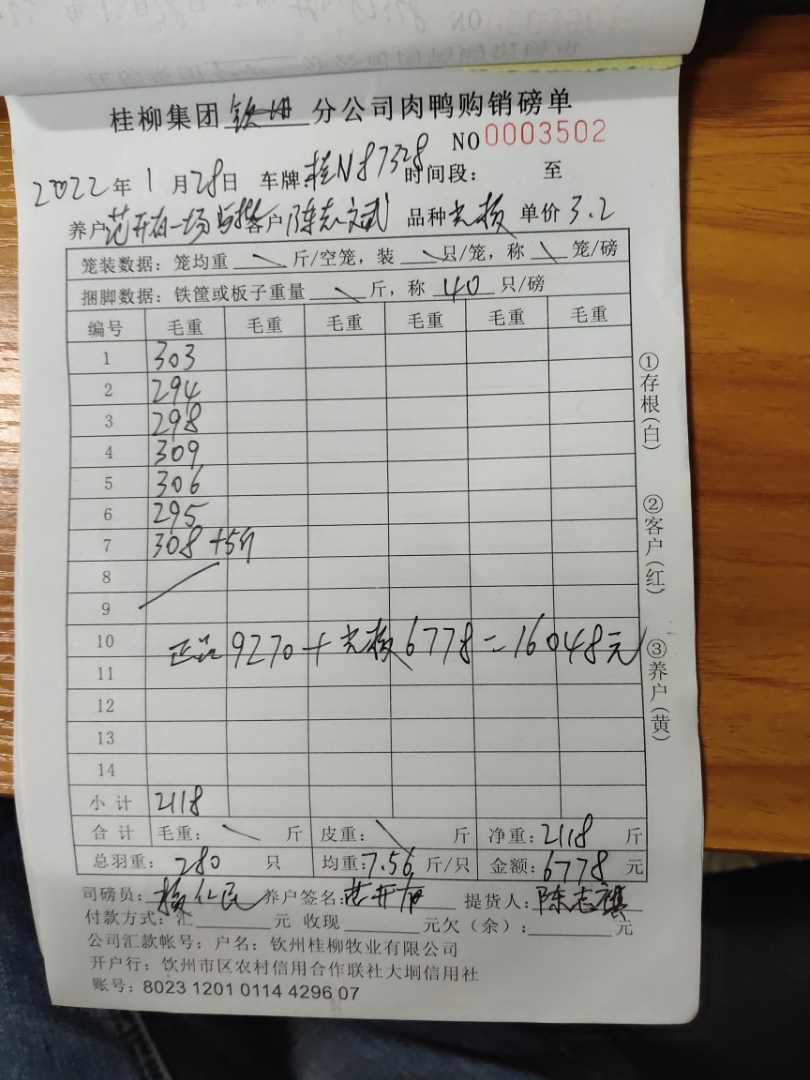 桂柳集团钦州分公司肉鸭购销磅单
NO 0003502
2022年1月28日 车牌:桂N87328 时间段: 至
养户范开有一场 客户陈志斌 品种 单价3.2
笼装数据: 笼均重 \ 斤/空笼, 装 \ 只/笼, 称 \ 笼/磅
捆脚数据: 铁筐或板子重量 \ 斤, 称 40 只/磅
编号 毛重 毛重 毛重 毛重 毛重 毛重
1 303
2 294
3 298
4 309
5 306
6 295
7 308 +5斤
8
9
10
9270+ 6778=16048元
11
12
13
14
小计 2118
合计 毛重: \ 斤 皮重: \ 斤 净重: 2118 斤
总羽重: 280 只 均重: 7.56 斤/只 金额: 6778 元
司磅员: 杨仁民 养户签名: 范开有 提货人: 陈志
付款方式: 汇 元 收现 元欠(余): 元
公司汇款帐号: 户名: 钦州桂柳牧业有限公司
开户行: 钦州市区农村信用合作联社大垌信用社
账号: 8023 1201 0114 4296 07
①存根(白)
②客户(红)
③养户(黄)